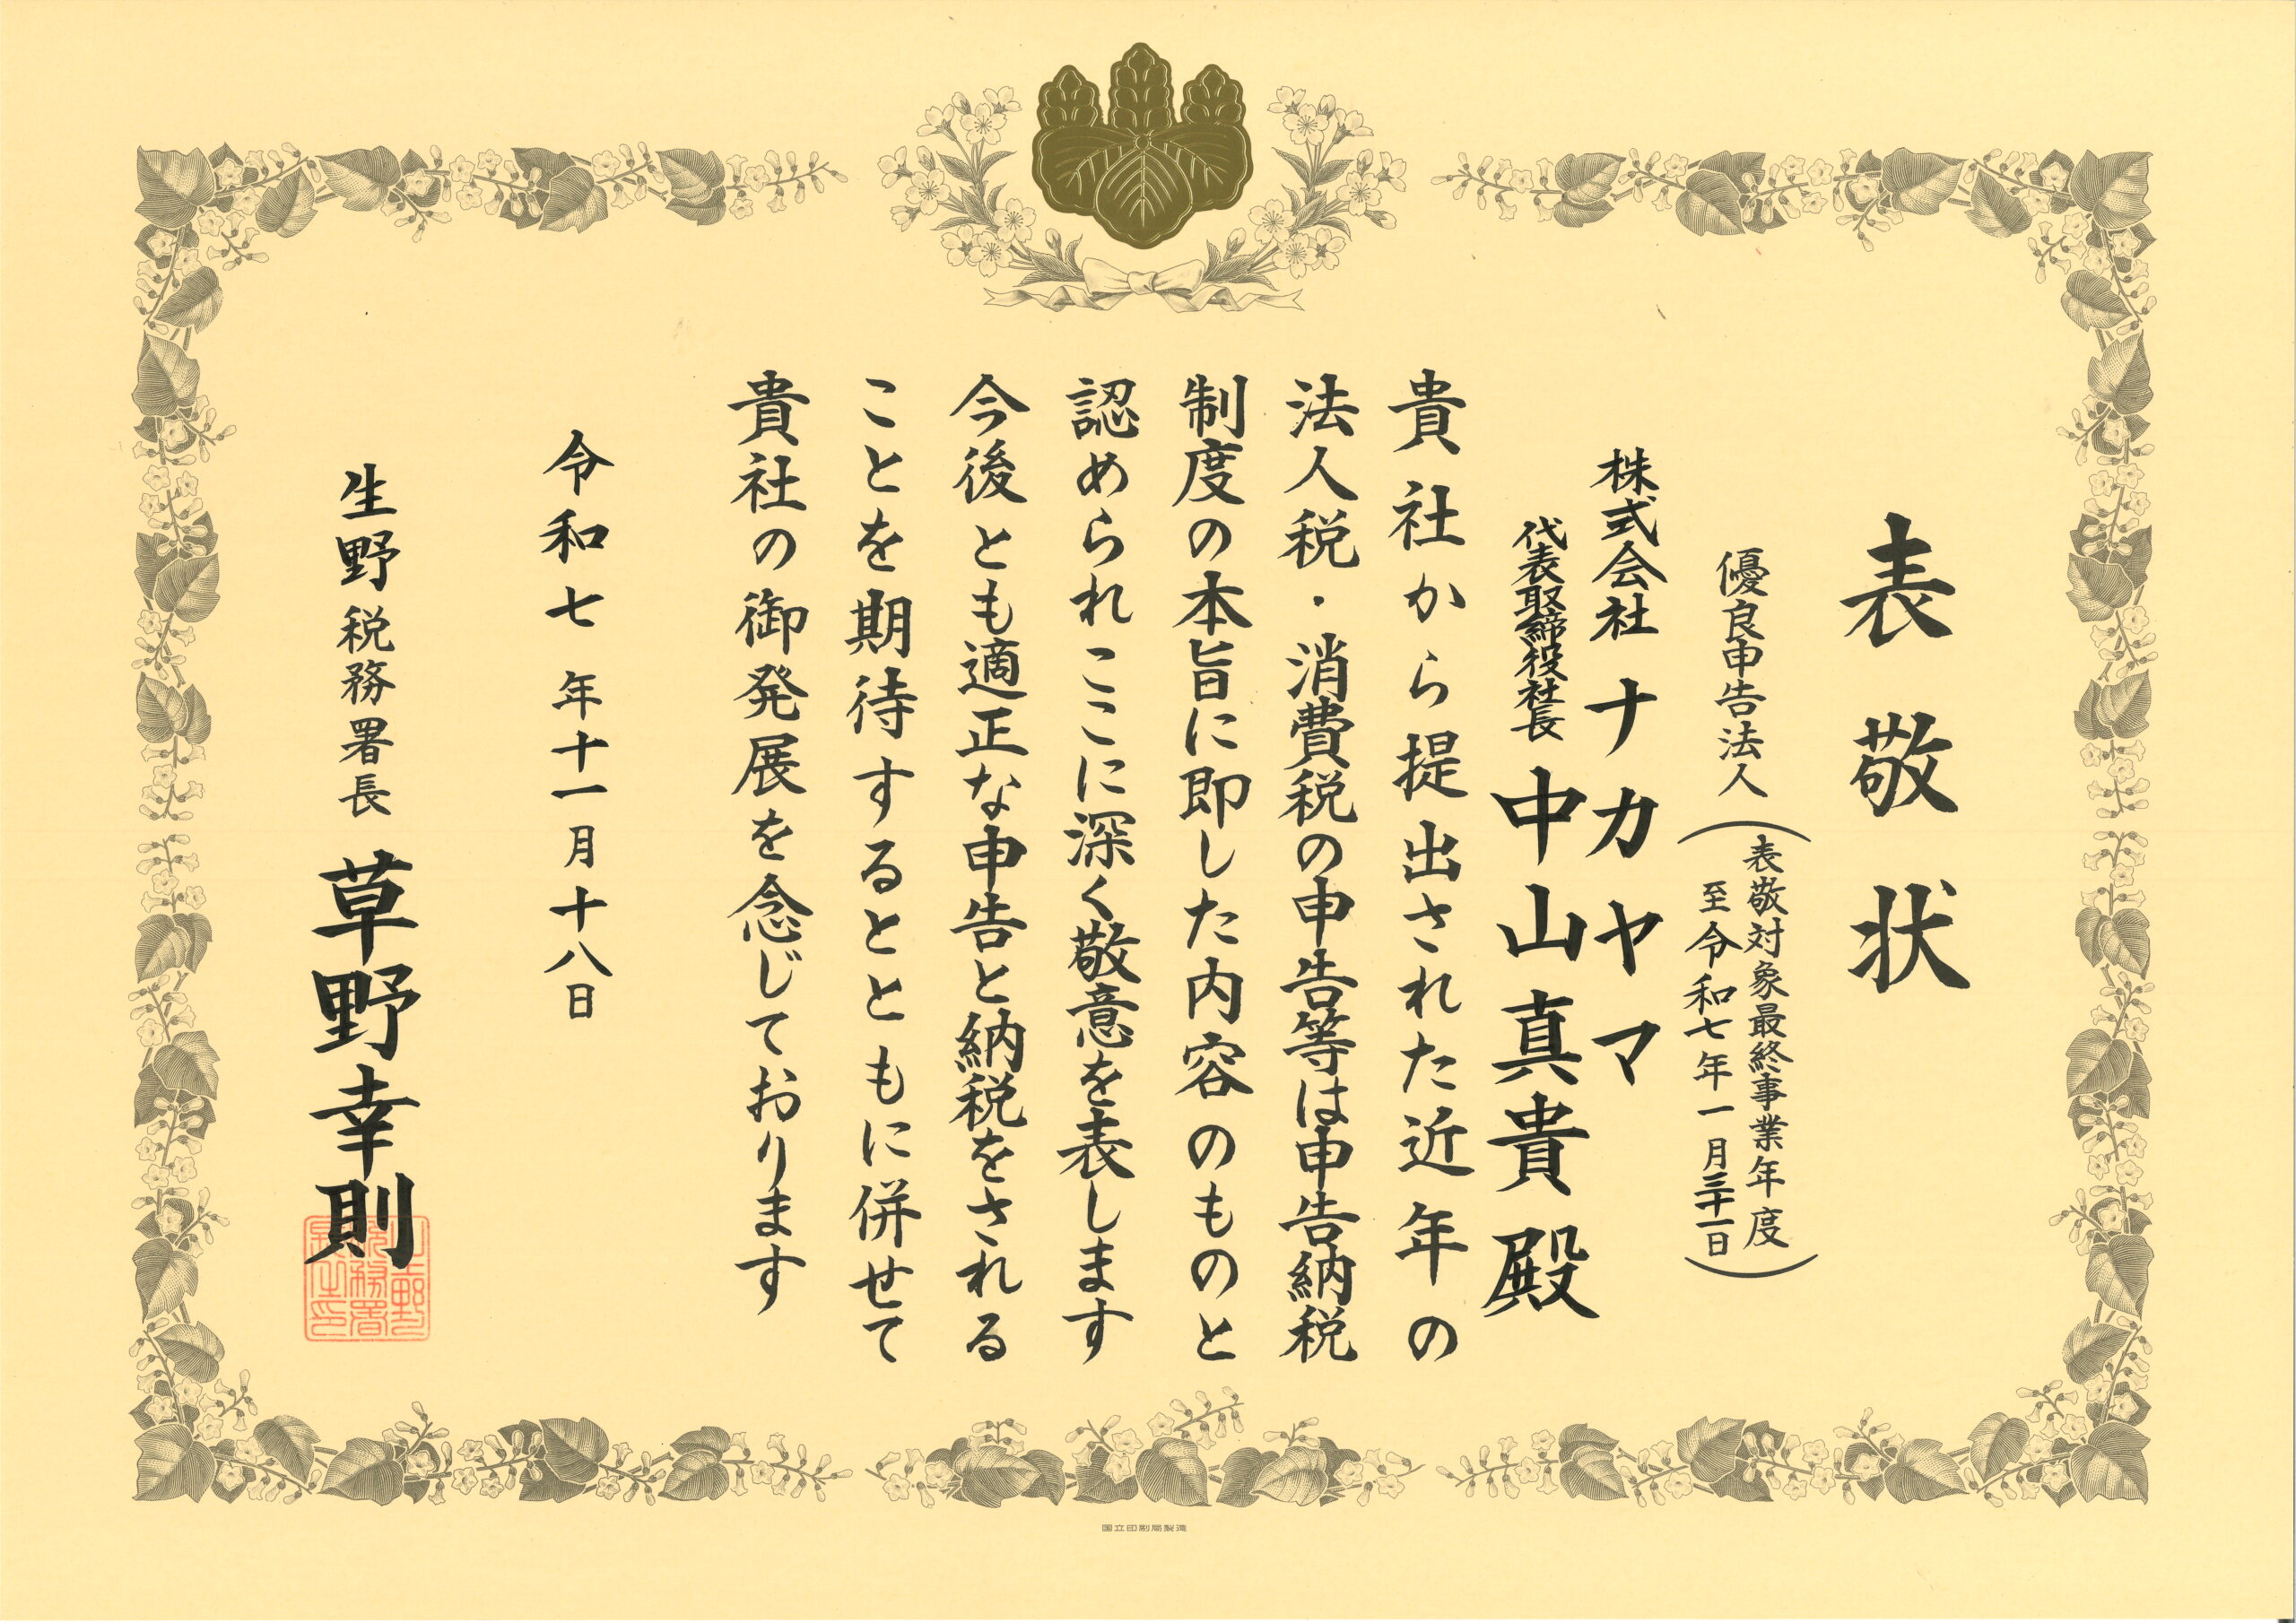 表敬状
優良申告法人
（表敬対象最終事業年度
至令和七年一月三十一日）
株式会社 ナカヤマ
代表取締役社長 中山真貴殿
貴社から提出された近年の
法人税・消費税の申告等は申告納税
制度の本旨に即した内容のものと
認められここに深く敬意を表します
今後とも適正な申告と納税をされる
ことを期待するとともに併せて
貴社の御発展を念じております
令和七年十一月十八日
生野税務署長 草野幸則
国立印刷局製造